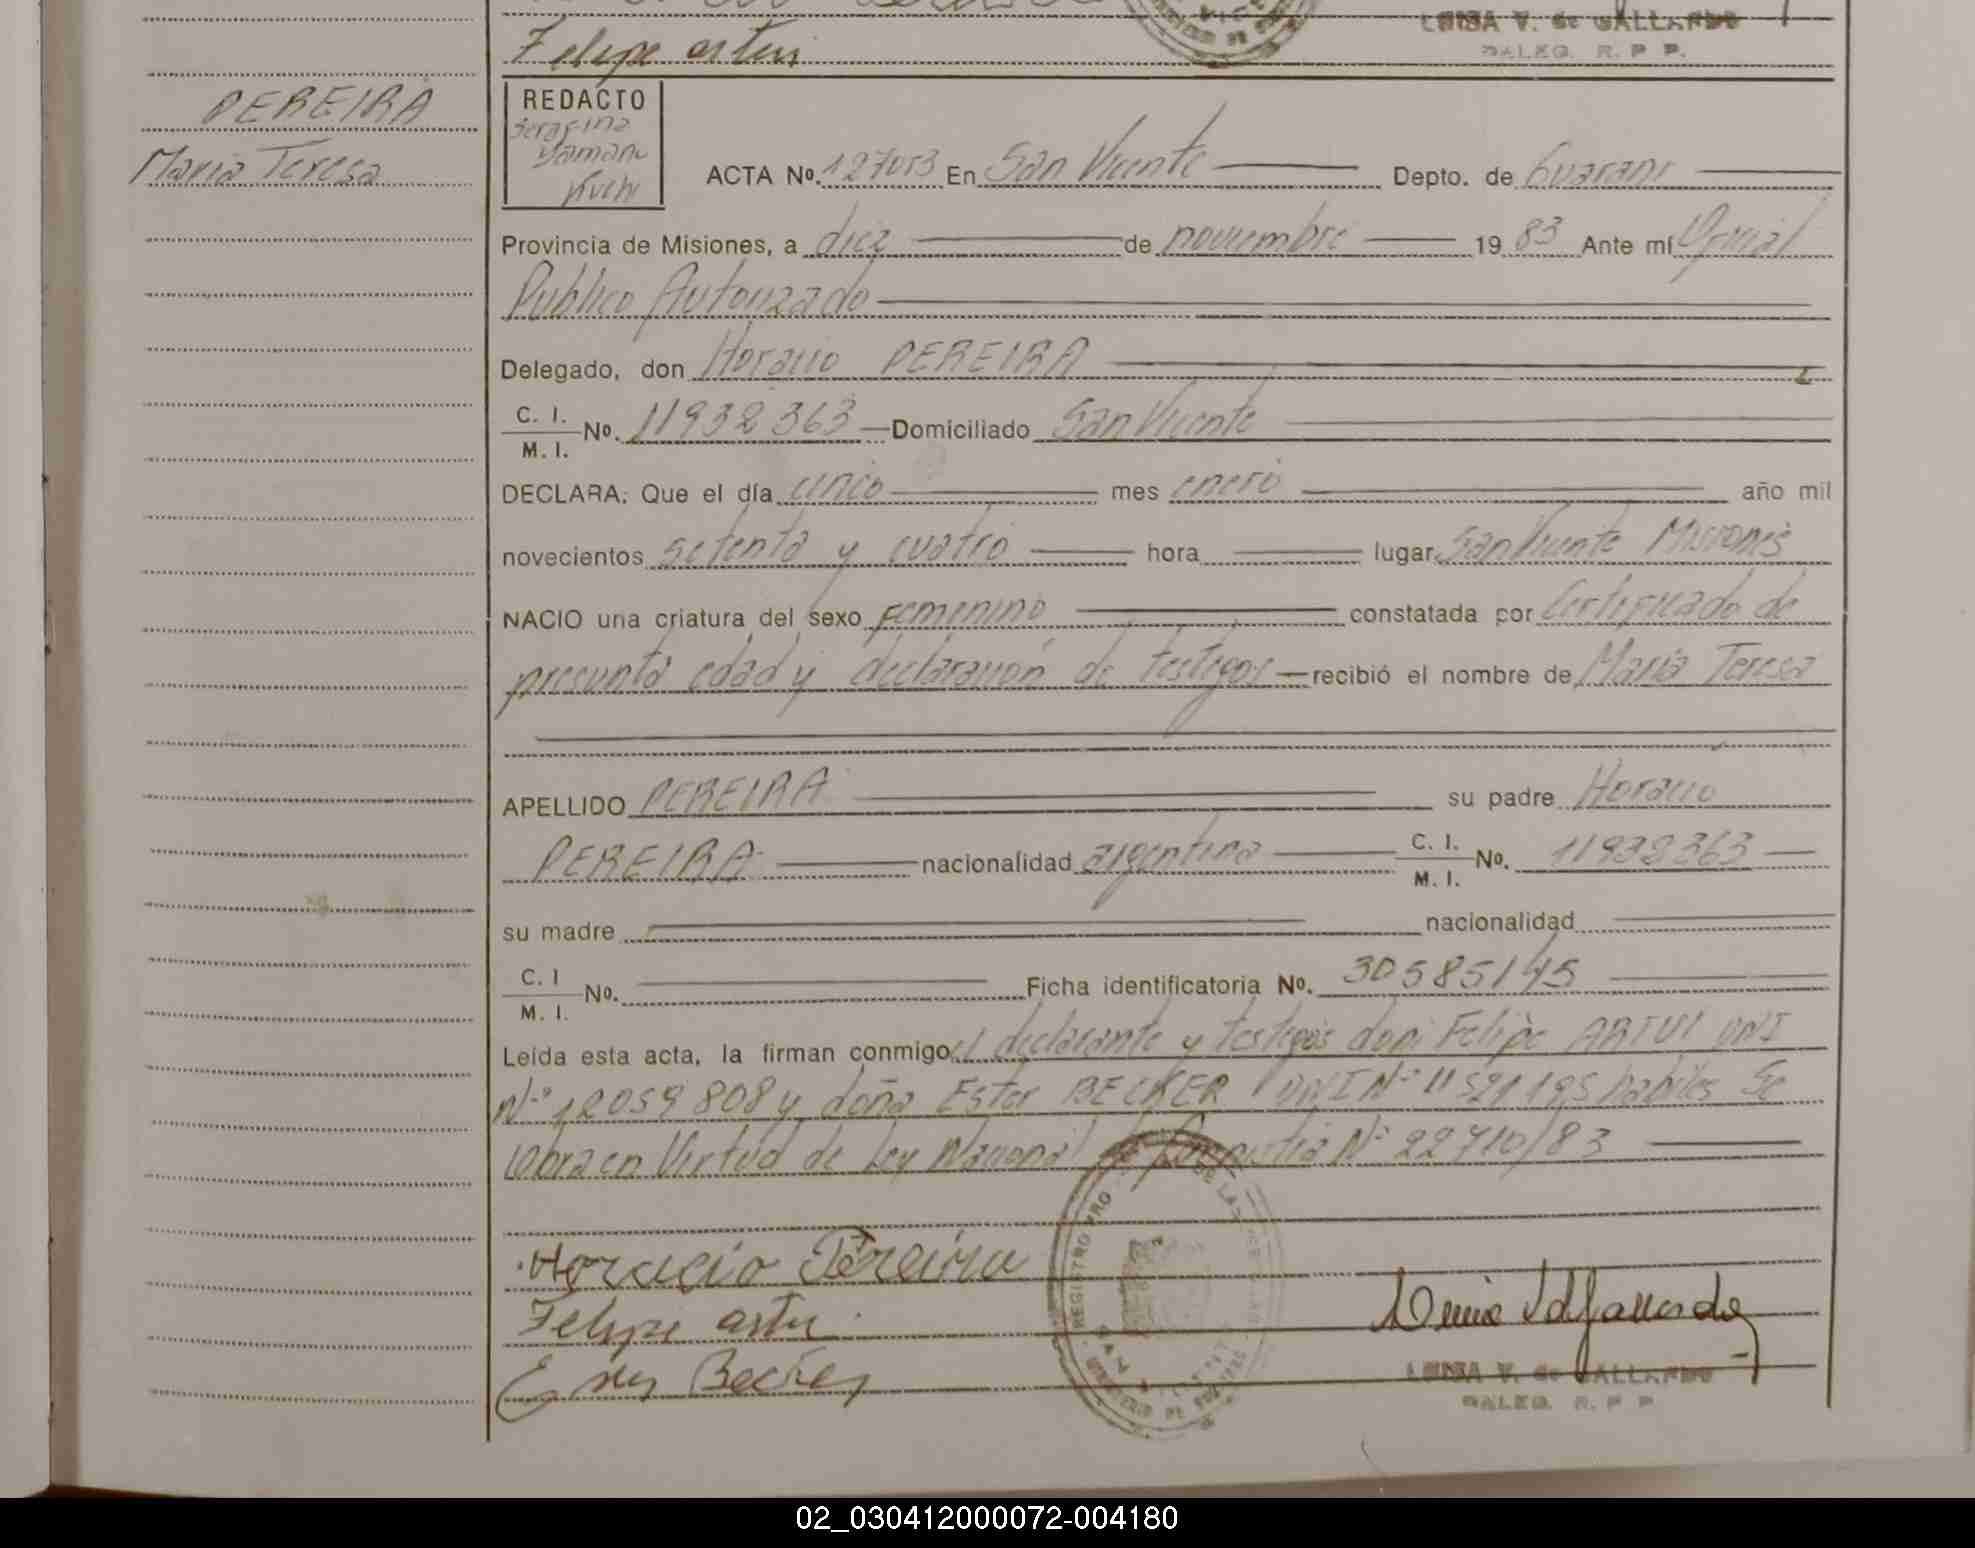 Felipe artu
LUISA V. de GALLARDO
DALEG. R. P. P.
PEREIRA
Maria Teresa
REDACTO
Serafina
Yamani
Kuchi
ACTA Nº. 127053 En San Vicente Depto. de Guarani
Provincia de Misiones, a diez de noviembre 19 83 Ante mí Oficial
Publico Autorizado
Delegado, don Horacio PEREIRA
C. I.
M. I. Nº. 11932363 Domiciliado San Vicente
DECLARA: Que el día cinco mes enero año mil
novecientos setenta y cuatro hora lugar San Vicente Misiones
NACIO una criatura del sexo femenino constatada por Certificado de
presunta edad y declaración de testigos recibió el nombre de Maria Teresa
APELLIDO PEREIRA su padre Horacio
PEREIRA nacionalidad argentina C. I.
M. I. Nº. 11932363
su madre nacionalidad
C. I
M. I. Nº. Ficha identificatoria Nº. 30585145
Leída esta acta, la firman conmigo el declarante y testigos don: Felipe ARTUI DNI
Nº 12059808 y doña Ester BECKER DNI Nº 11521195 habiles Se
labra en Virtud de Ley Nacional de Amnistia Nº 22710/83
Horacio Pereira
Felipe artu
Ester Becker
REGISTRO PRO DE LAS
LUISA V. de GALLARDO
DALEG. R. P P
02_030412000072-004180